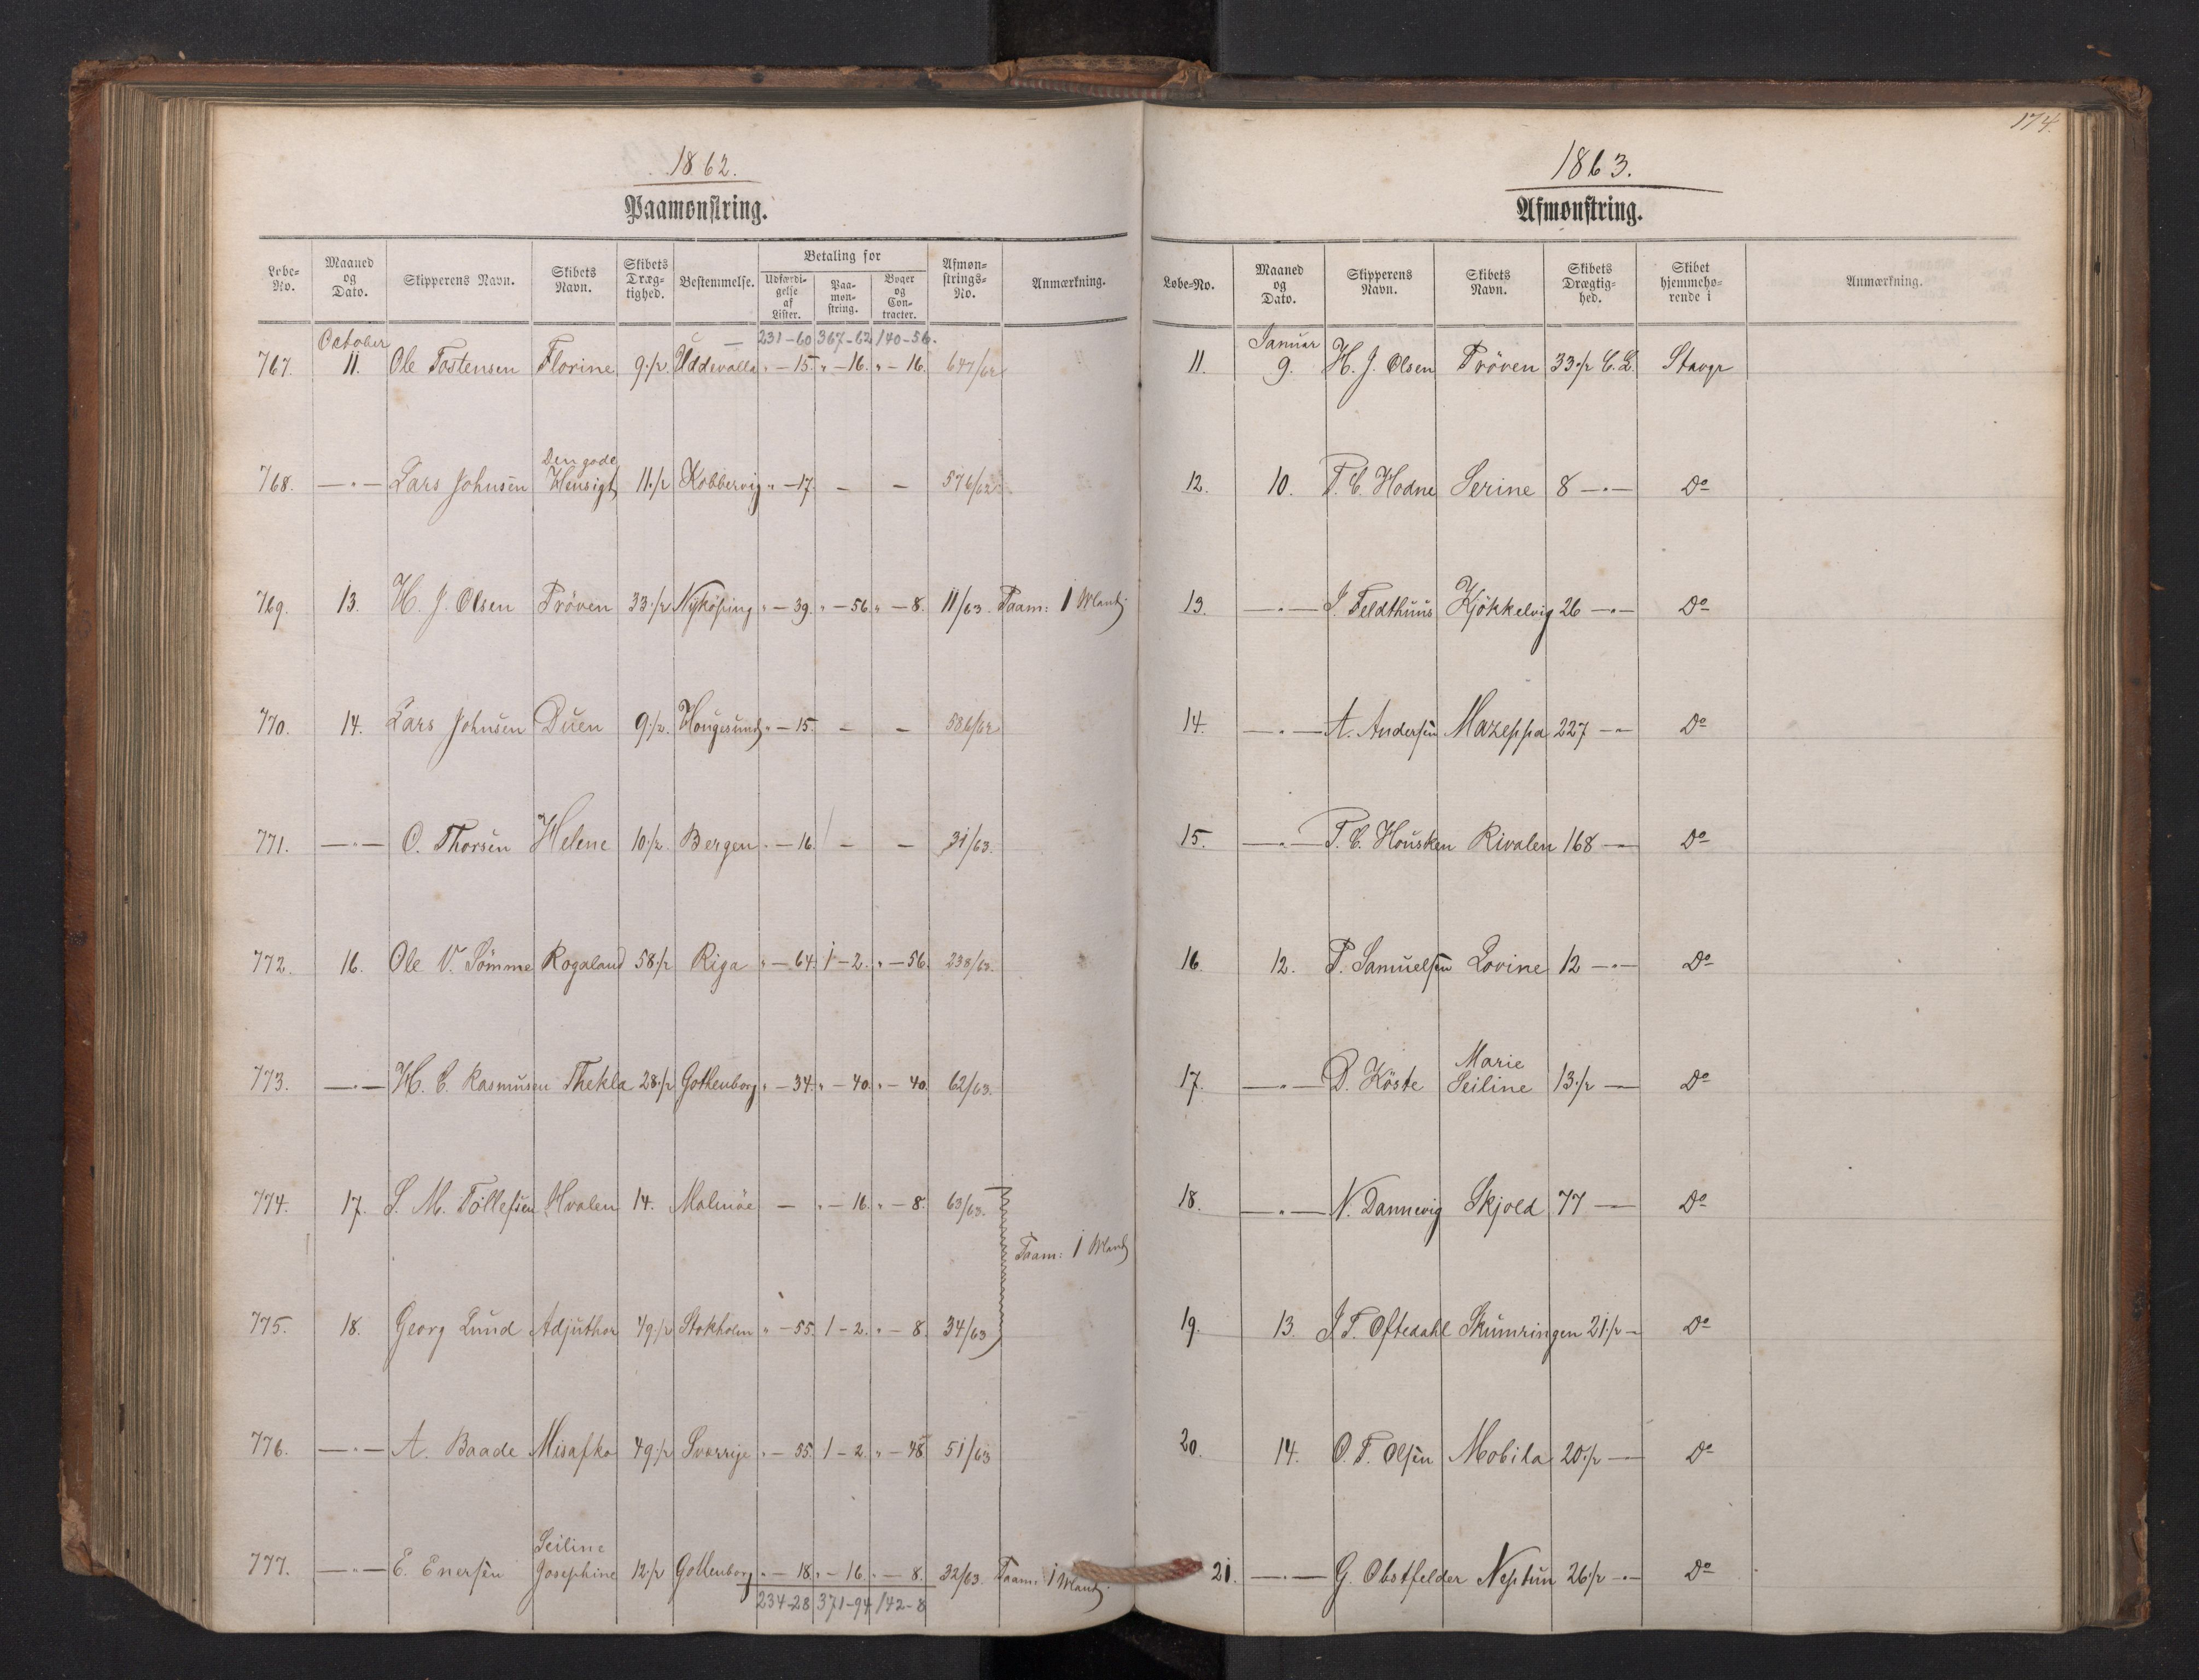 1862.
Paamønstring.
Løbe-No. | Maaned og Dato. | Skipperens Navn. | Skibets Navn. | Skibets Dræg-tighed. | Bestemmelse. | Betaling for | Udfærdi-gelse af Lister. | Paa-møn-string. | Bøger og Con-tracter. | Afmøn-strings-No. | Anmærkning.
— 231-60 367-62 140-56.
October
767. 11. Ole Tostensen Florine 9 1/2 Uddevalla " - 15. " - 16. " - 16. 647/62
Den gode
768. —"— Lars Johnsen Hensigt 11 1/2 Kobbervig " - 17. - - 576/62
769. 13. H. J. Olsen Pröven 33 1/2 Nyköping " - 39. " - 56. " - 8. 11/63. Paam: 1 Mand
770. 14. Lars Johnsen Duen 9 1/2. Hougesund " - 15. - - 586/62
771. —"— O. Thorsen Helene 10 1/2. Bergen " - 16. - - 31/63.
772. 16. Ole V. Sömme Rogaland 58 1/2 Riga " - 64. 1 - 2. " - 56. 238/63.
773. —"— H. C. Rasmusen Thekla 28 1/2 Gothenborg " - 34. " - 40. " - 40. 62/63.
774. 17. S. M. Tollefsen Hvalen 14. Malmöe - " - 16. " - 8. 63/63.
Paam: 1 Mand
775. 18. Georg Lund Adjuthor 49 1/2 Stokholm " - 55. 1 - 2. " - 8. 34/63
776. —"— A. Baade Misafka 49 1/2 Sverrige " - 55. 1 - 2. " - 48 51/63
Seiline
777. —"— E. Enersen Josephine 12 1/2 Gothenborg " - 18. " - 16. " - 8. 32/63. Paam: 1 Mand.
234-28 371-94 142-8
174.
1863.
Afmønstring.
Løbe-No. | Maaned og Dato. | Skipperens Navn. | Skibets Navn. | Skibets Drægtig-hed. | Skibet hjemmehø-rende i | Anmærkning.
Januar
11. 9. H. J. Olsen Pröven 33 1/2 C. L. Stavgr
12. 10. T. C. Hodne Serine 8 —"— Do
13. —"— J. Feldthuus Kjökkelvig 26 —"— Do
14. —"— A. Andersen Mazeppa 227 —"— Do
15. —"— T. C. Housken Rivalen 168 — Do
16. 12. P. Samuelsen Lovine 12 —"— Do
Marie
17. —"— D. Köste Seiline 13 1/2 — Do
18. —"— N. Dannevig Skjold 77 — Do
19. 13. J T. Oftedahl Skumringen 21 1/2 — Do
20. 14. O. T. Olsen Mobila 20 1/2 — Do
21. —"— G. Obstfelder Neptun 26 1/2 —"— Do